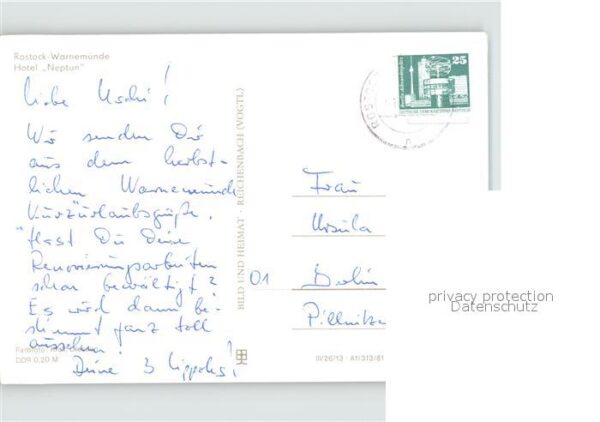 Rostock-Warnemünde
Hotel „Neptun"
Liebe Uschi!
Wir senden Dir
aus dem herbst-
lichen Warnemünde
Kurzurlaubsgrüße.
Hast Du Deine
Renovierungsarbeiten
schon bewältigt?
Es wird dann be-
stimmt ganz toll
aussehen!
Deine 3
DDR 0,20 M
BILD UND HEIMAT · REICHENBACH (VOGTL)
25
Frau
Ursula
01 Berlin
Pillnitze
III/26/13 · A1/313/81
privacy protection
Datenschutz